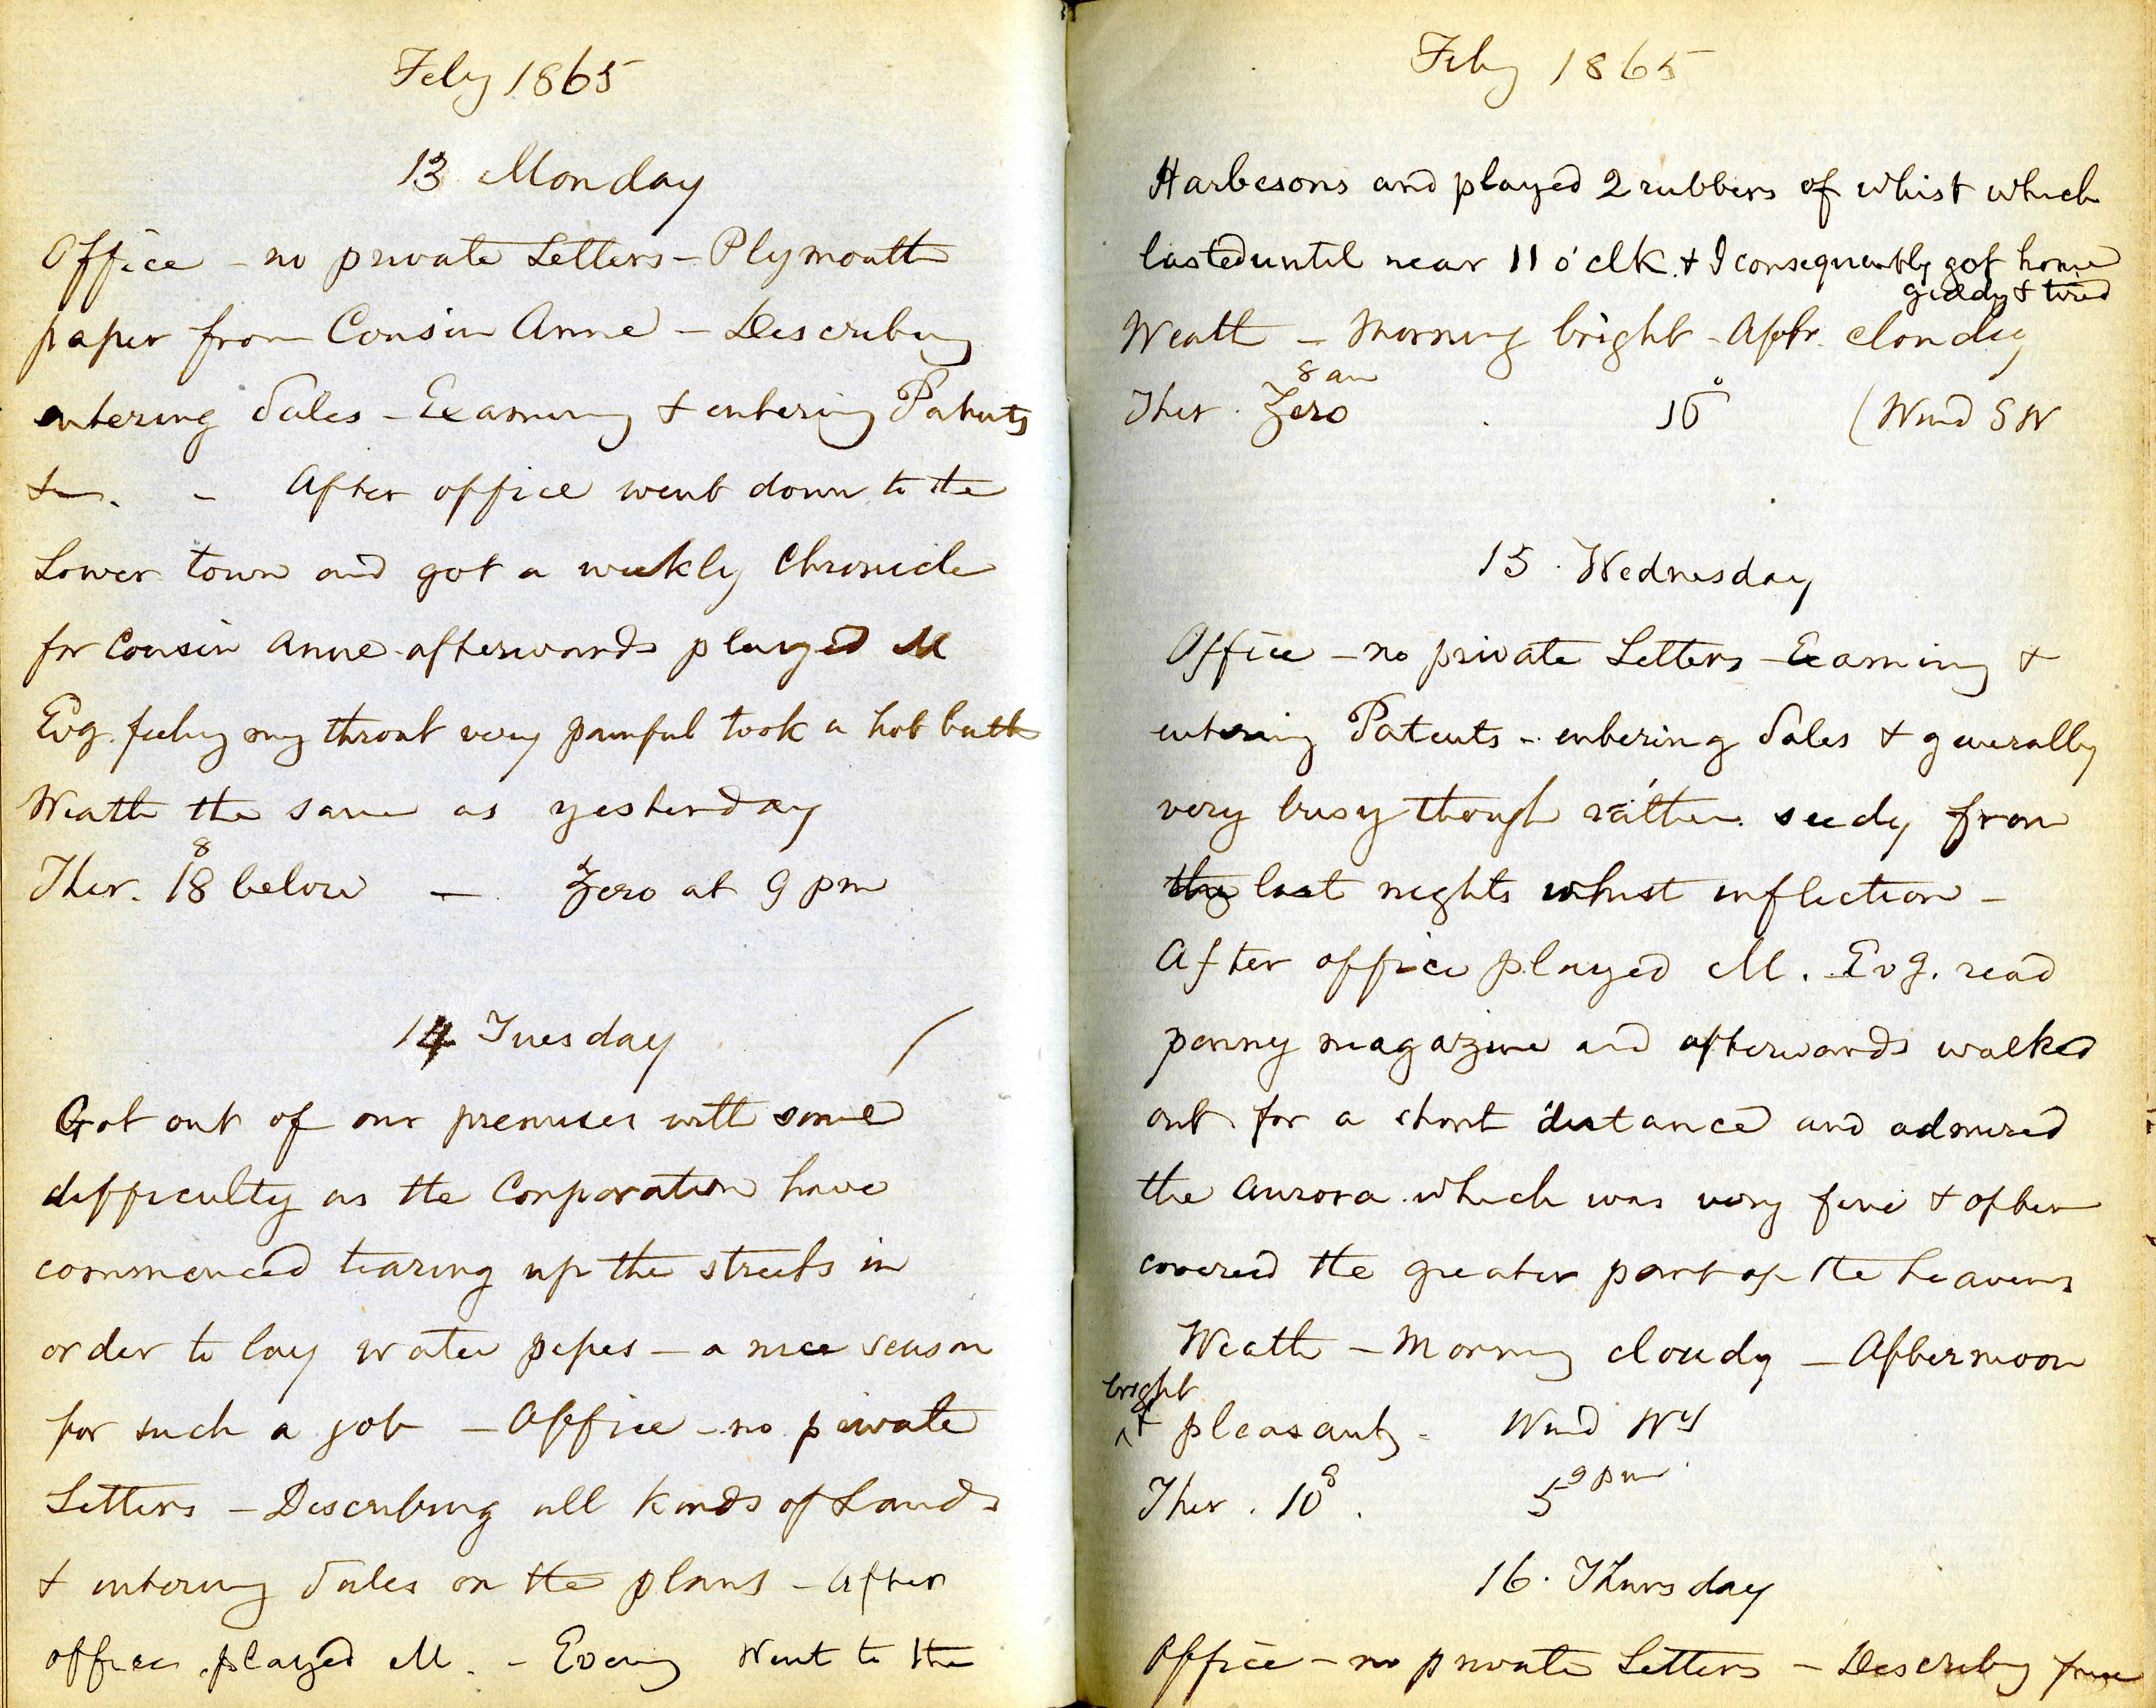 Feby 1865
13 Monday
Office - no private Letters - Plymouth
paper from Cousin Anne - Describing
entering Sales - Examining & entering Patents
&c. - After office went down to the
Lower town and got a weekly Chronicle
for Cousin Anne afterwards played M
Evg. feeling my throat very painful took a hot bath
Weath the same as yesterday
8
Ther. 18 below - Zero at 9 pm
14 Tuesday
Got out of our premises with some
difficulty as the Corporation have
commenced tearing up the streets in
order to lay water pipes - a nice season
for such a job - Office - no private
Letters - Describing all kinds of Lands
& entering Sales on the plans - After
office played M. - Evening Went to the
Feby 1865
Harbesons and played 2 rubbers of whist which
lasted until near 11 o'clk. & I consequently got home
giddy & tired
Weath - Morning bright - Aftr. cloudy
8 am
Ther. Zero 15° (Wind SW
15. Wednesday
Office - no private Letters - Examining &
entering Patents - entering Sales & generally
very busy though rather seedy from
the last nights whist infliction -
After office played M. Evg. read
penny magazine and afterwards walked
out for a short distance and admired
the aurora which was very fine & often
covered the greater part of the heavens
Weath - Morning cloudy - Afternoon
bright
& pleasant - Wind Wy
Ther. 10 8. 5 9 pm
16. Thursday
Office - no private Letters - Describing free